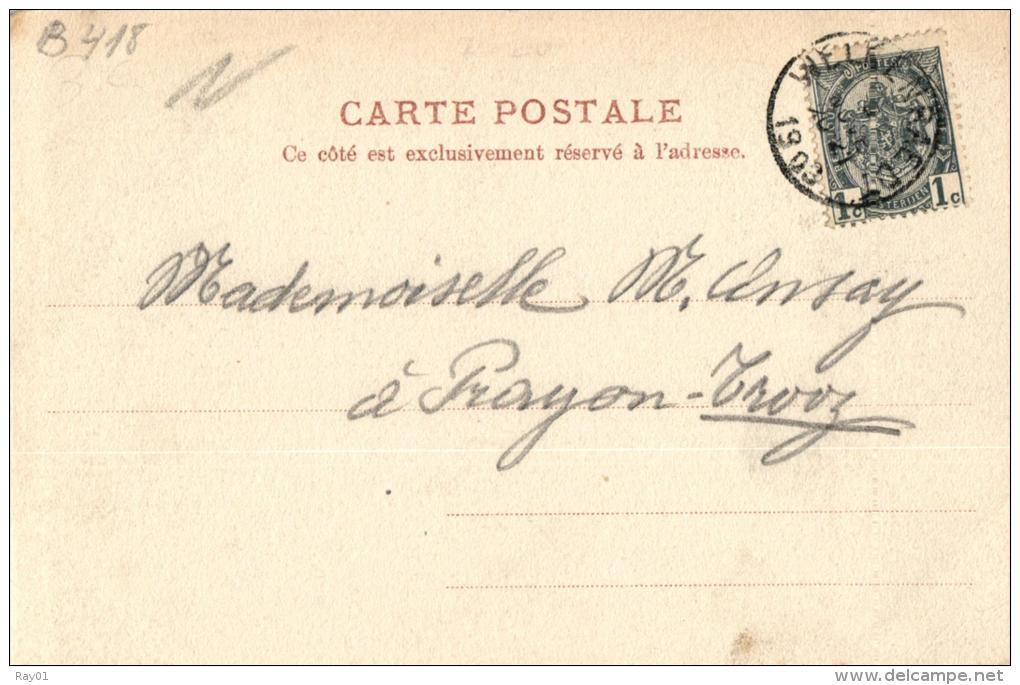 B 418
CARTE POSTALE
Ce côté est exclusivement réservé à l'adresse.
1903
1c 1c
Mademoiselle M. Ansay
à Prayon-Trooz
Ray01
delcampe.net